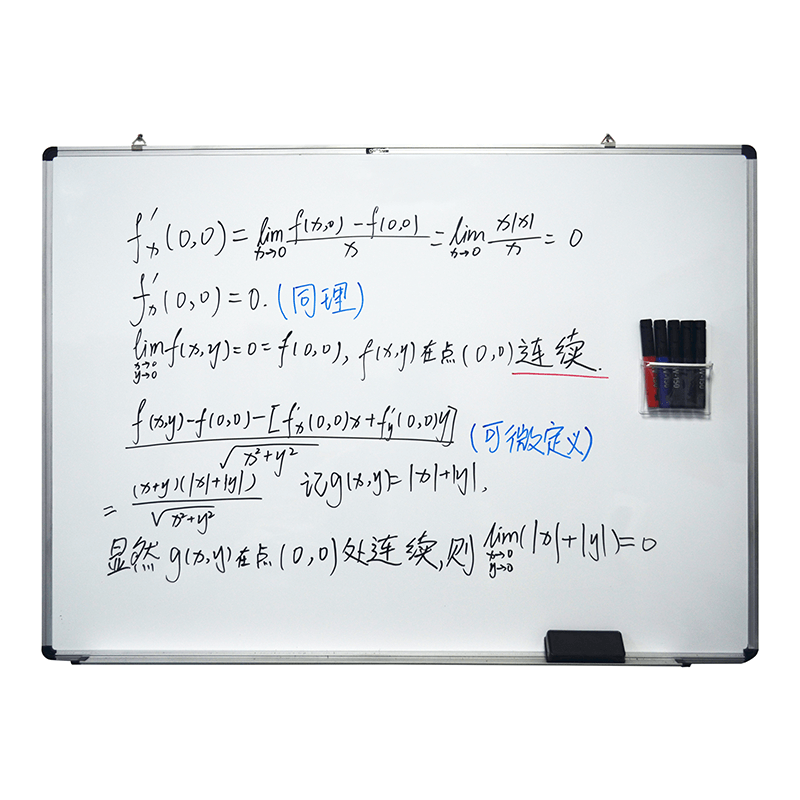 f'ₓ(0,0) = lim_{x→0} (f(x,0) - f(0,0))/x = lim_{x→0} x|x|/x = 0
f'ₓ(0,0) = 0. (同理)
lim_{x→0, y→0} f(x,y) = 0 = f(0,0), f(x,y)在点(0,0)连续.
(f(x,y) - f(0,0) - [f'ₓ(0,0)x + f'_y(0,0)y])/√(x²+y²) (可微定义)
= (x+y)(|x|+|y|)/√(x²+y²) 记g(x,y)=|x|+|y|,
显然 g(x,y)在点(0,0)处连续,则 lim_{x→0, y→0} (|x|+|y|) = 0